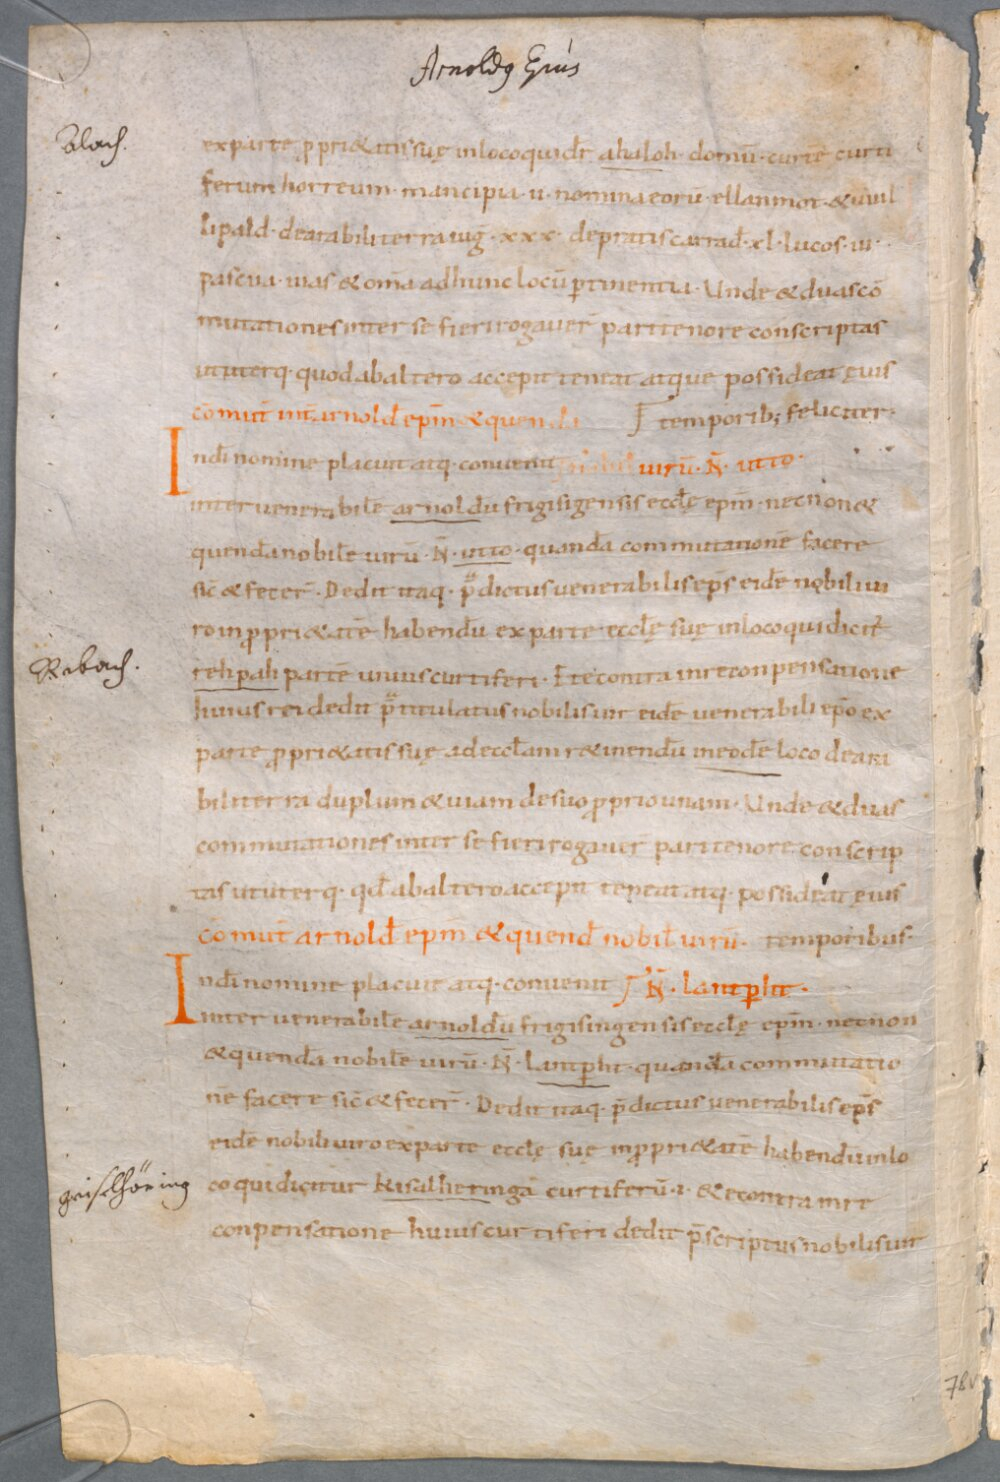 Arnoldꝰ Epus
Alach.
ex parte ꝓpri&atis suę in loco qui dr̄ ahaloh · domū · curtē curti
ferum horreum · mancipia · u · nomina eorū · ellanmot · & uuil
lipald · de arabili terra iuḡ · xxx · de pratis carrad̄ · xl · lucos · iii ·
pascua · uias & om̄a ad hunc locū ꝑtinentia · Unde & duas cō
mutationes inter se fieri rogauer̄ pari tenore conscriptas
ut uterq · quod ab altero accepit teneat atque possideat ęuis
cōmut̄ int̄ arnold̄ epm̄ & quend
temporib; feliciter ·
Indī nomine placuit atq · conuenit
uirū · N̄ · utto ·
inter uenerabilē arnoldū frigisigensis eccłę epm̄ · necnon &
quendā nobilē uirū · N̄ · utto · quandā commutationē facere
sic̄ & fecer̄ · Dedit itaq · p̄dictus uenerabilis ep̄s eidē nobili ui
ro in ꝓpri&atē habendū ex parte eccłę suę in loco qui dicit̄
rehpah partē unius curtiferi · Et econtra in reconpensatione
huius rei dedit p̄titulatus nobilis uir eidē uenerabili ep̄o ex
Rebach.
parte ꝓpri&atis suę ad eccłam r&inendū in eodē loco de ara
bili terra duplum & uiam de suo ꝓprio unam · Unde & duas
commutationes inter se fieri rogauer̄ pari tenore conscrip
tas ut uterq · qd̄ ab altero accepit teneat atq · possideat ęuis
cōmut̄ arnold̄ epm̄ & quend̄ nobil̄ uirū · temporibus ·
Indī nomine placuit atq · conuenit N̄ · lantꝑht ·
inter uenerabilē arnoldū frigisingensis eccłę epm̄ · necnon
& quendā nobilē uirū · N̄ · lantꝑht · quandā commutatio
nē facere sic̄ & fecer̄ · Dedit itaq · p̄dictus uenerabilis ep̄s
eidē nobili uiro ex parte eccłę suę in ꝓpri&atē habendū in lo
co qui dicitur kisalheringa curtiferū · i · & econtra in re
geiselhöring
conpensatione huius curtiferi dedit p̄scriptus nobilis uir
78v